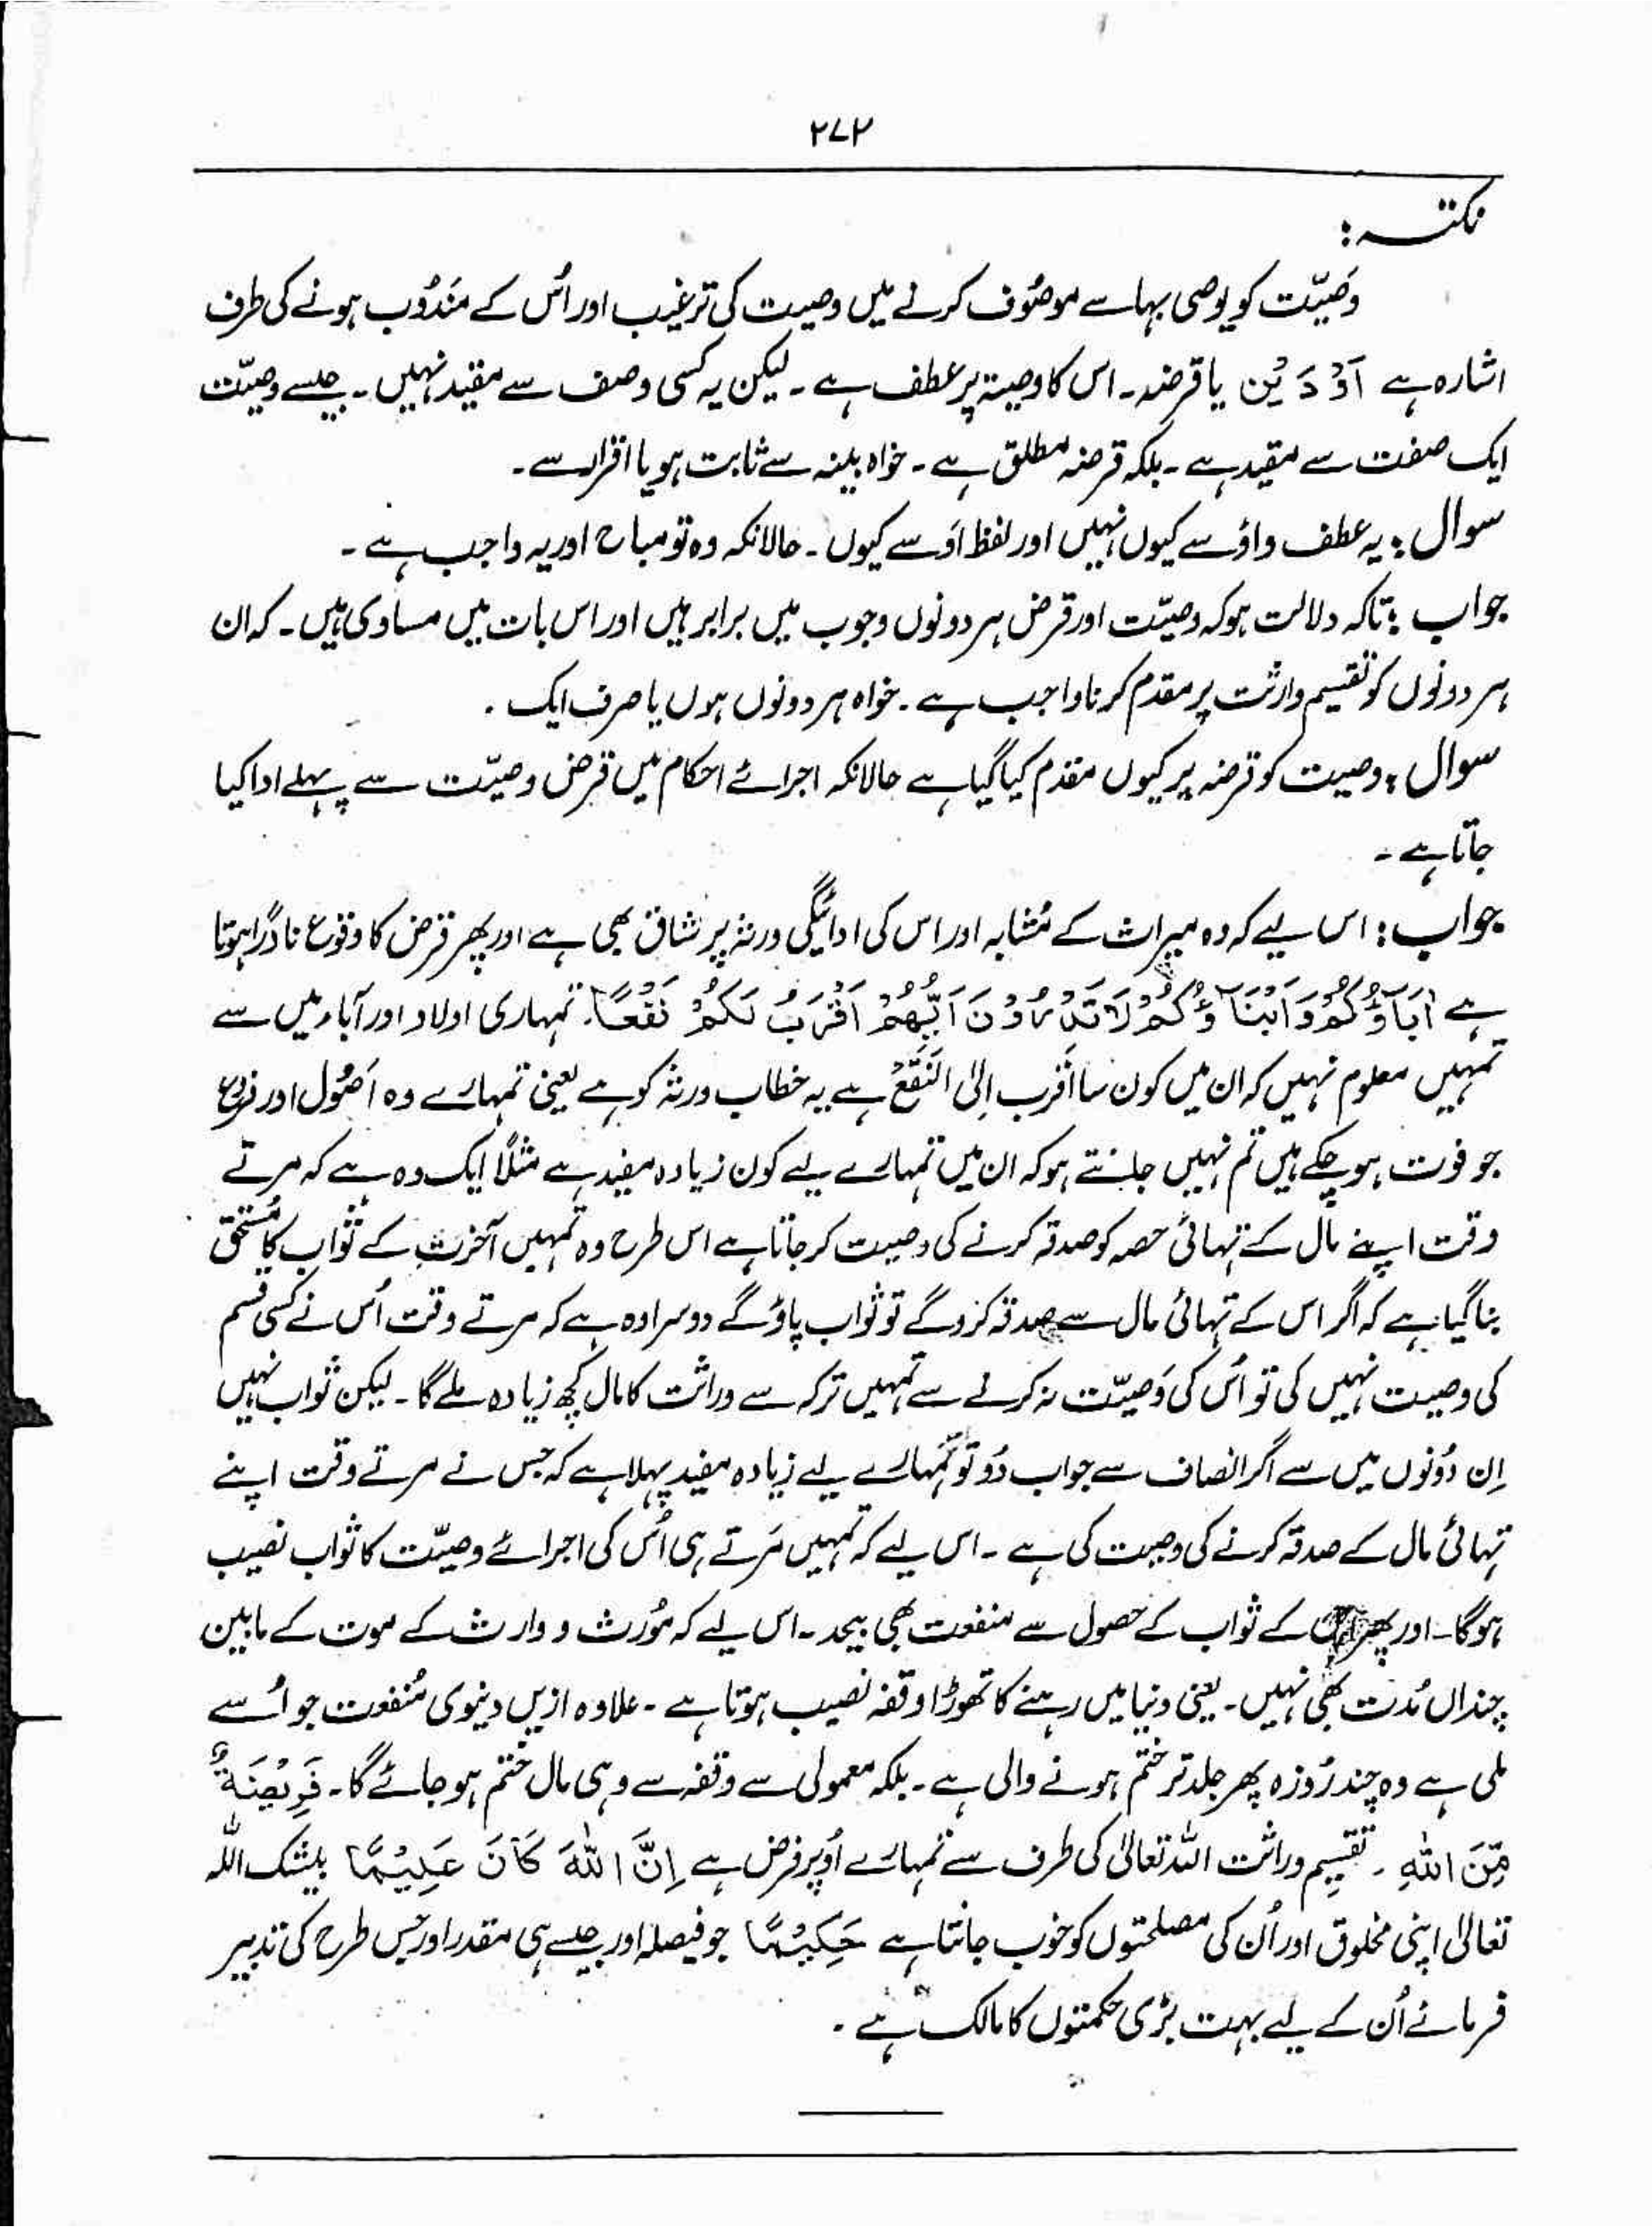 ۲۷۲
نکتہ :
وَصیّت کو یوصی بہا سے موصُوف کرنے میں وصیت کی ترغیب اور اُس کے مَندُوب ہونے کی طرف
اشارہ ہے اَوْ دَیْن یا قرضہ ۔ اس کا وصیۃ پر عطف ہے ۔ لیکن یہ کسی وصف سے مقید نہیں ۔ جیسے وصیّت
ایک صفت سے مقید ہے ۔ بلکہ قرضہ مطلق ہے ۔ خواہ بینہ سے ثابت ہو یا اقرار سے ۔
سوال : یہ عطف واؤ سے کیوں نہیں اور لفظ اَو سے کیوں ۔ حالانکہ وہ تو مباح اور یہ واجب ہے ۔
جواب : تاکہ دلالت ہو کہ وصیّت اور قرض ہر دونوں وجوب میں برابر ہیں اور اس بات میں مساوی ہیں ۔ کہ ان
ہر دونوں کو تقسیم وارثت پر مقدم کرنا واجب ہے ۔ خواہ ہر دونوں ہوں یا صرف ایک ۔
سوال : وصیت کو قرضہ پر کیوں مقدم کیا گیا ہے حالانکہ اجرائے احکام میں قرض وصیّت سے پہلے ادا کیا
جاتا ہے ۔
جواب : اس لیے کہ وہ میراث کے مُشابہ اور اس کی ادائیگی ورثہ پر شاق بھی ہے اور پھر قرض کا وقوع نادرًا ہوتا
ہے اٰبَآؤُكُمْ وَاَبْنَآؤُكُمْ لَا تَدْرُوْنَ اَیُّهُمْ اَقْرَبُ لَكُمْ نَفْعًا۔ تمہاری اولاد اور آباء میں سے
تمہیں معلوم نہیں کہ ان میں کون سا اَقرب اِلیٰ النَفَعْ ہے یہ خطاب ورثہ کو ہے یعنی تمہارے وہ اَصُول اور فروع
جو فوت ہو چکے ہیں تم نہیں جانتے ہو کہ ان میں تمہارے لیے کون زیادہ مفید ہے مثلًا ایک وہ ہے کہ مرتے
وقت اپنے مال کے تہائی حصہ کو صدقہ کرنے کی وصیت کر جاتا ہے اس طرح وہ تمہیں آخرت کے ثواب کا مُستحق
بنا گیا ہے کہ اگر اس کے تہائی مال سے صدقہ کرو گے تو ثواب پاؤ گے دوسرا وہ ہے کہ مرتے وقت اُس نے کسی قسم
کی وصیت نہیں کی تو اُس کی وَصیّت نہ کرنے سے تمہیں ترکہ سے وراثت کا مال کچھ زیادہ ملے گا ۔ لیکن ثواب نہیں
اِن دُونوں میں سے اگر انصاف سے جواب دُو تو تمُہارے لیے زیادہ مفید پہلا ہے کہ جس نے مرتے وقت اپنے
تہائی مال کے صدقہ کرنے کی وصیت کی ہے ۔ اس لیے کہ تمہیں مَرتے ہی اُس کی اجرائے وصیّت کا ثواب نصیب
ہوگا ۔ اور پھر کے ثواب کے حصول سے منفعت بھی بیحد ۔ اس لیے کہ مُورث و وارث کے موت کے مابین
چنداں مُدت بھی نہیں ۔ یعنی دنیا میں رہنے کا تھوڑا وقفہ نصیب ہوتا ہے ۔ علاوہ ازیں دنیوی مُنفعت جو اُسے
ملی ہے وہ چند رُوزہ پھر جلد تر ختم ہونے والی ہے ۔ بلکہ معمولی سے وقفہ سے وہی مال ختم ہو جائے گا ۔ فَرِیْضَةً
مِّنَ اللهِ ۔ تقسیمِ وراثت اللہ تعالیٰ کی طرف سے تمُہارے اُوپر فرض ہے اِنَّ اللهَ كَانَ عَلِیْمًا بیشک اللہ
تعالیٰ اپنی مخلوق اور اُن کی مصلحتوں کو خوب جانتا ہے حَكِیْمًا جو فیصلہ اور جیسے ہی مقدر اور جس طرح کی تدبیر
فرمائے اُن کے لیے بہت بڑی حکمتوں کا مالک ہے ۔